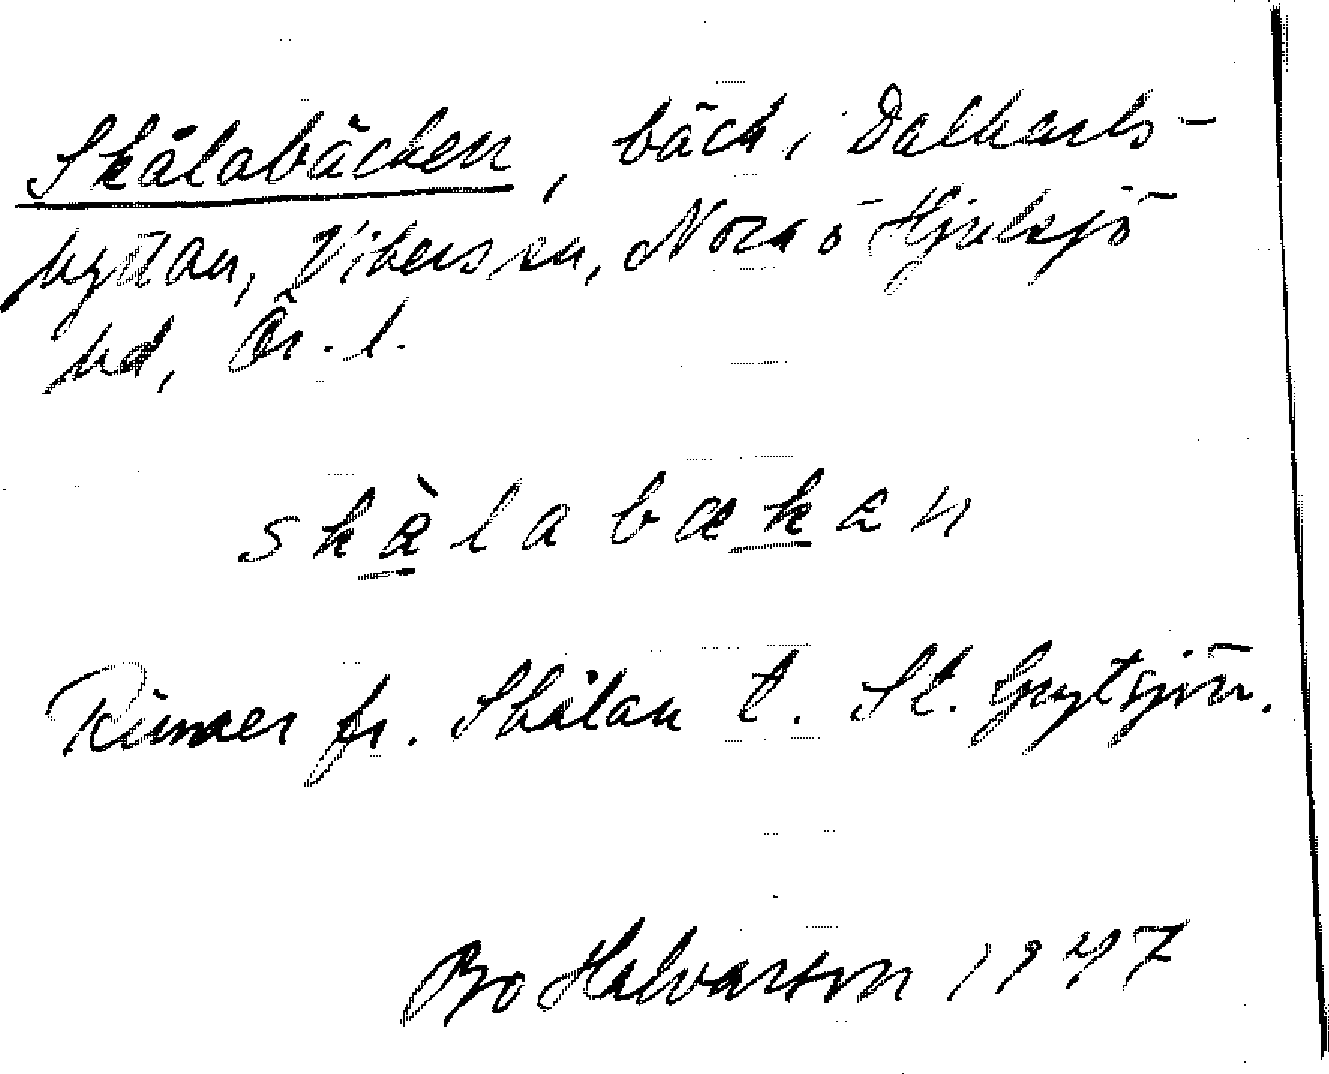 Skålabäcken, bäck i Dalkarls-
hyttan, Vikers sn, Nora o Hjulsjö
hd, Ör. l.
skàlabækan
Rinner fr. Skålan t. St. Grytsjön.
Bo Halvarson 1947